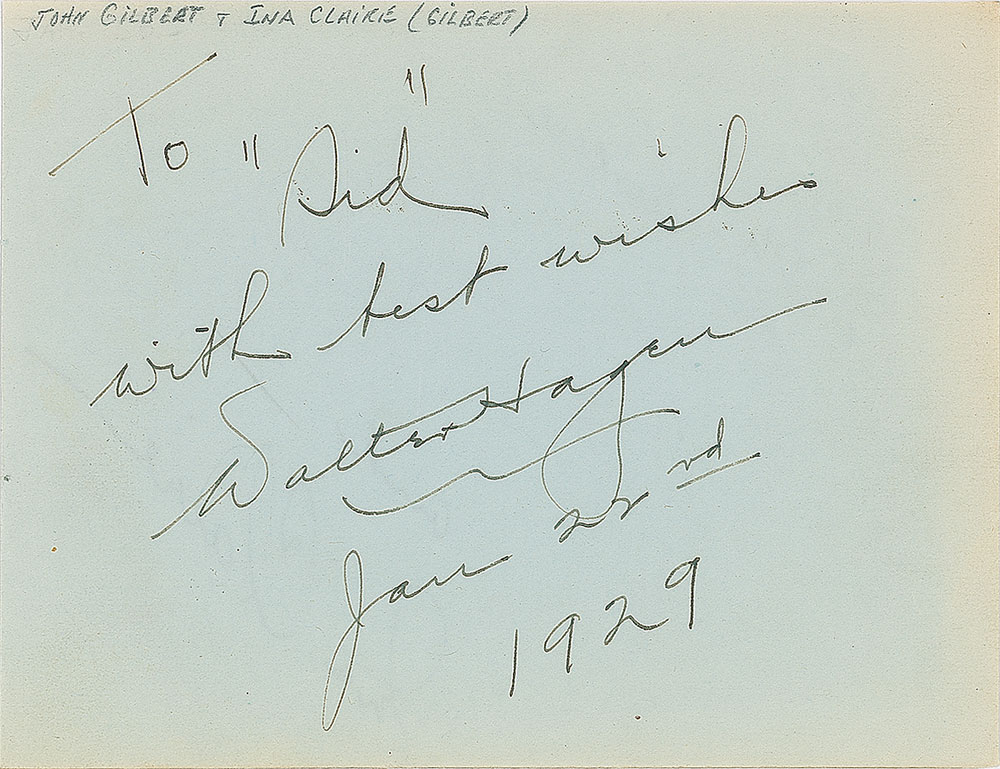 JOHN GILBERT + INA CLAIRE (GILBERT)
To "Sid"
with best wishes
Walter Hagen
Jan 22nd
1929